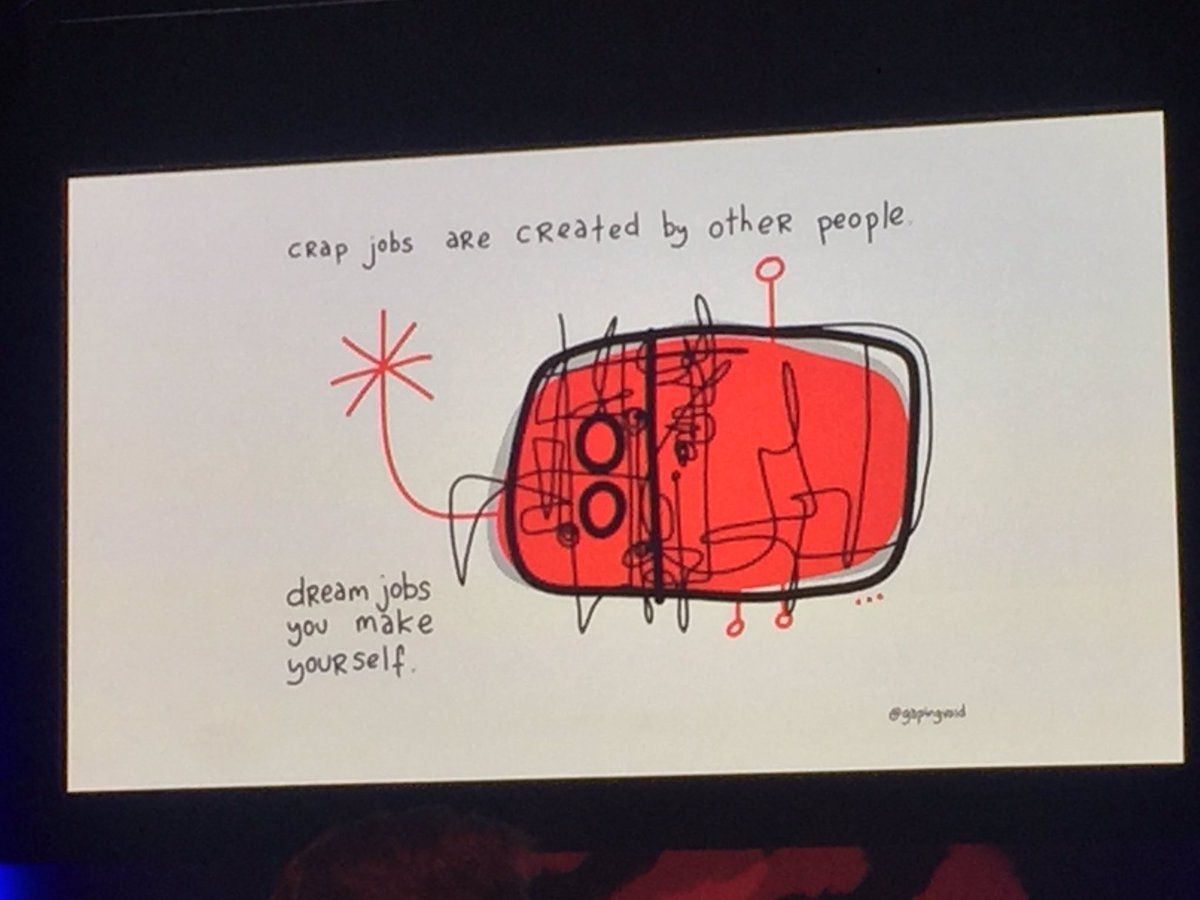 crap jobs are created by other people.
dream jobs
you make
yourself.
@gapingvoid